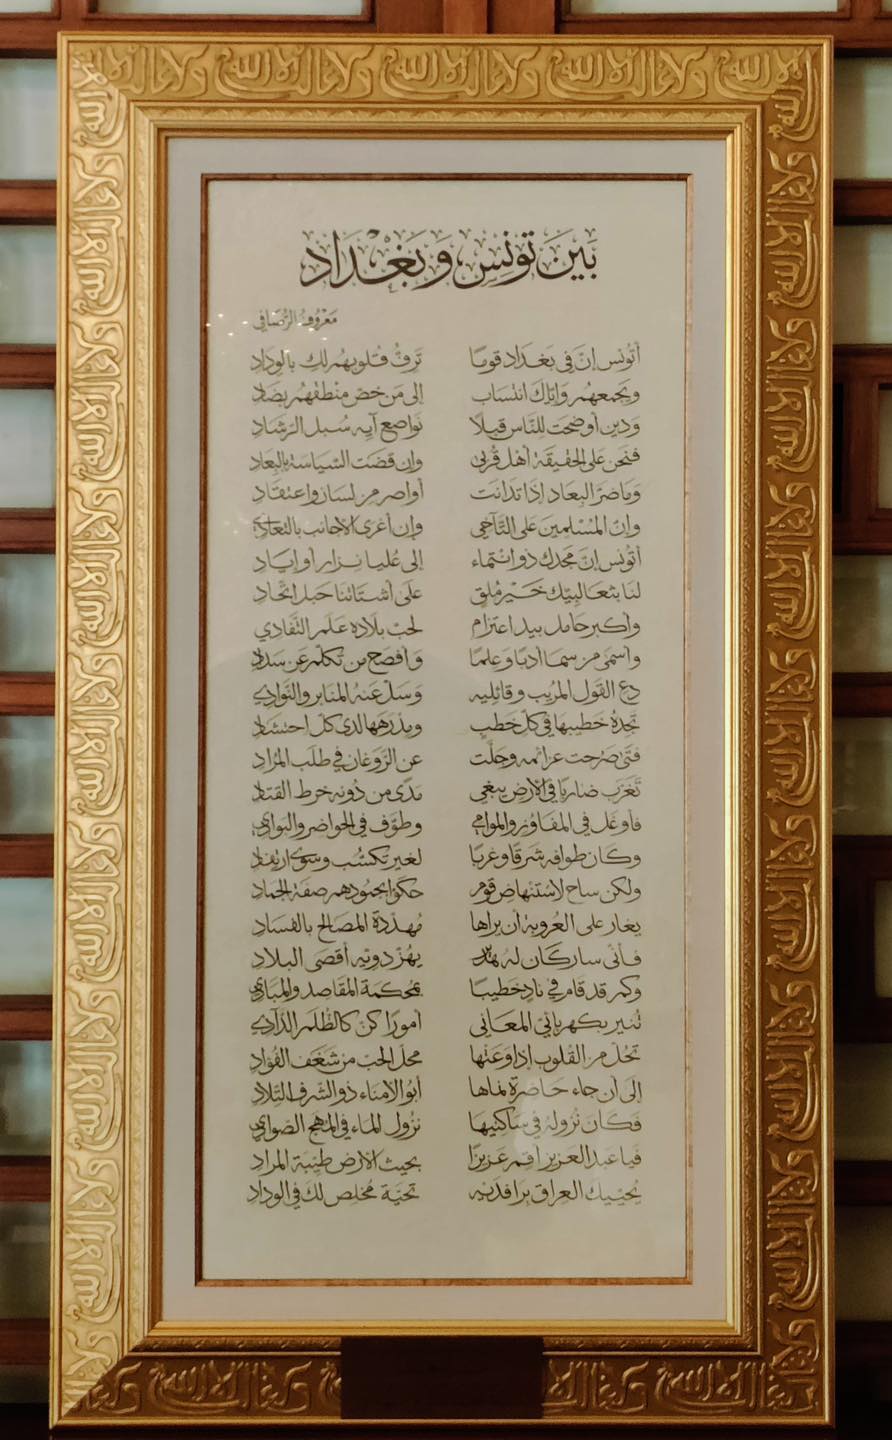 بَينَ تونِس وَبَغْدَاد
مَعْرُوف الرُّصَافي
أتُونس إنّ في بَغدَاد قومًا تَرِفُّ قُلوبهُم لك بالوِدَادِ
ويجمعهُم وَإيّاكَ انتسَاب إلى مَن خصّ منطقهُم بِضَادِ
وَدين أوضحَت للنَّاس قبلًا نَواصع آيِه سُبل الرّشادِ
فنحن على الحَقيقَة أهل قُربى وإن قضَت السّيَاسَة بالبِعَادِ
وَمَا ضرَّ البعَاد إذَا تدَانَت أواصر من لسَان واعتقَادِ
وإنّ المُسْلمينَ على التَّآخي وإن أغرى الأجَانب بالتّعَادي
أتُونس إنَّ مجدك ذو انتماء إلى عُليا نزار أو إيَادِ
لنَا بثعَالبِيّك خَيْر مُلقٍ عَلى أشتَاتنَا حَبل اتّحَادِ
وأكبر حَامل بيد اعتزَام لحبّ بلَاده عَلم التَّفَادي
وأسمَى من سمَا أدبًا وعلمًا وَأفصَح من تكلّم عَن سَدَادِ
دع القَول المُريب وقَائليه وَسَل عَنهُ المنَابر والنّوَادي
تجدهُ خطيبهَا في كلّ خطب ومِدْرَهها لدى كلّ احتشَادِ
فتًى صَرُحت عزَائمه وجلّت عن الرَّوغَان في طلَب المُرَادِ
تَغرّبَ ضَاربًا في الأرْض يبغي مَدًى من دُونه خرط القتَادِ
فأوغل في المفَاوز والموَامي وطوّف في الحوَاضر والبوَادي
وكَان طوَافه شرقًا وغربًا لغير تكسّب وسوى ارتفَادِ
ولكن سَاح لاستنهَاض قوم حكَوا بجمُودهم صفَة الجمَادِ
يغَار على العروبَة أن يرَاهَا مُهدّدة المصَالح بالفسَادِ
فأنّى سَار كَان لهُ هدير يهُزّ دويّه أقصَى البلَادِ
وكم قَد قَام في نَادٍ خَطيبًا بمُحكمَة المقَاصد والمبَادي
تُنير بكهربائيّ المعَاني أمورًا كنّ كالظُّلم الدّآدي
تحُلّ من القُلوب إذَا وعَتهَا محلّ الحبّ من شَغَف الفُؤادِ
إلى أن جَاء حَاضرة نمَاهَا أبُو الأمنَاء ذو الشّرف التّلَادِ
فكَان نُزولهُ في سَاكنيهَا نزُول المَاء في المُهَج الصّوَادي
فيَا عَبد العَزيز أقم عَزيزًا بحيثُ الأرْض طيّبَة المرَادِ
يُحيّيكَ العرَاق برَافدَيه تحيّة مُخلص لكَ في الودَادِ